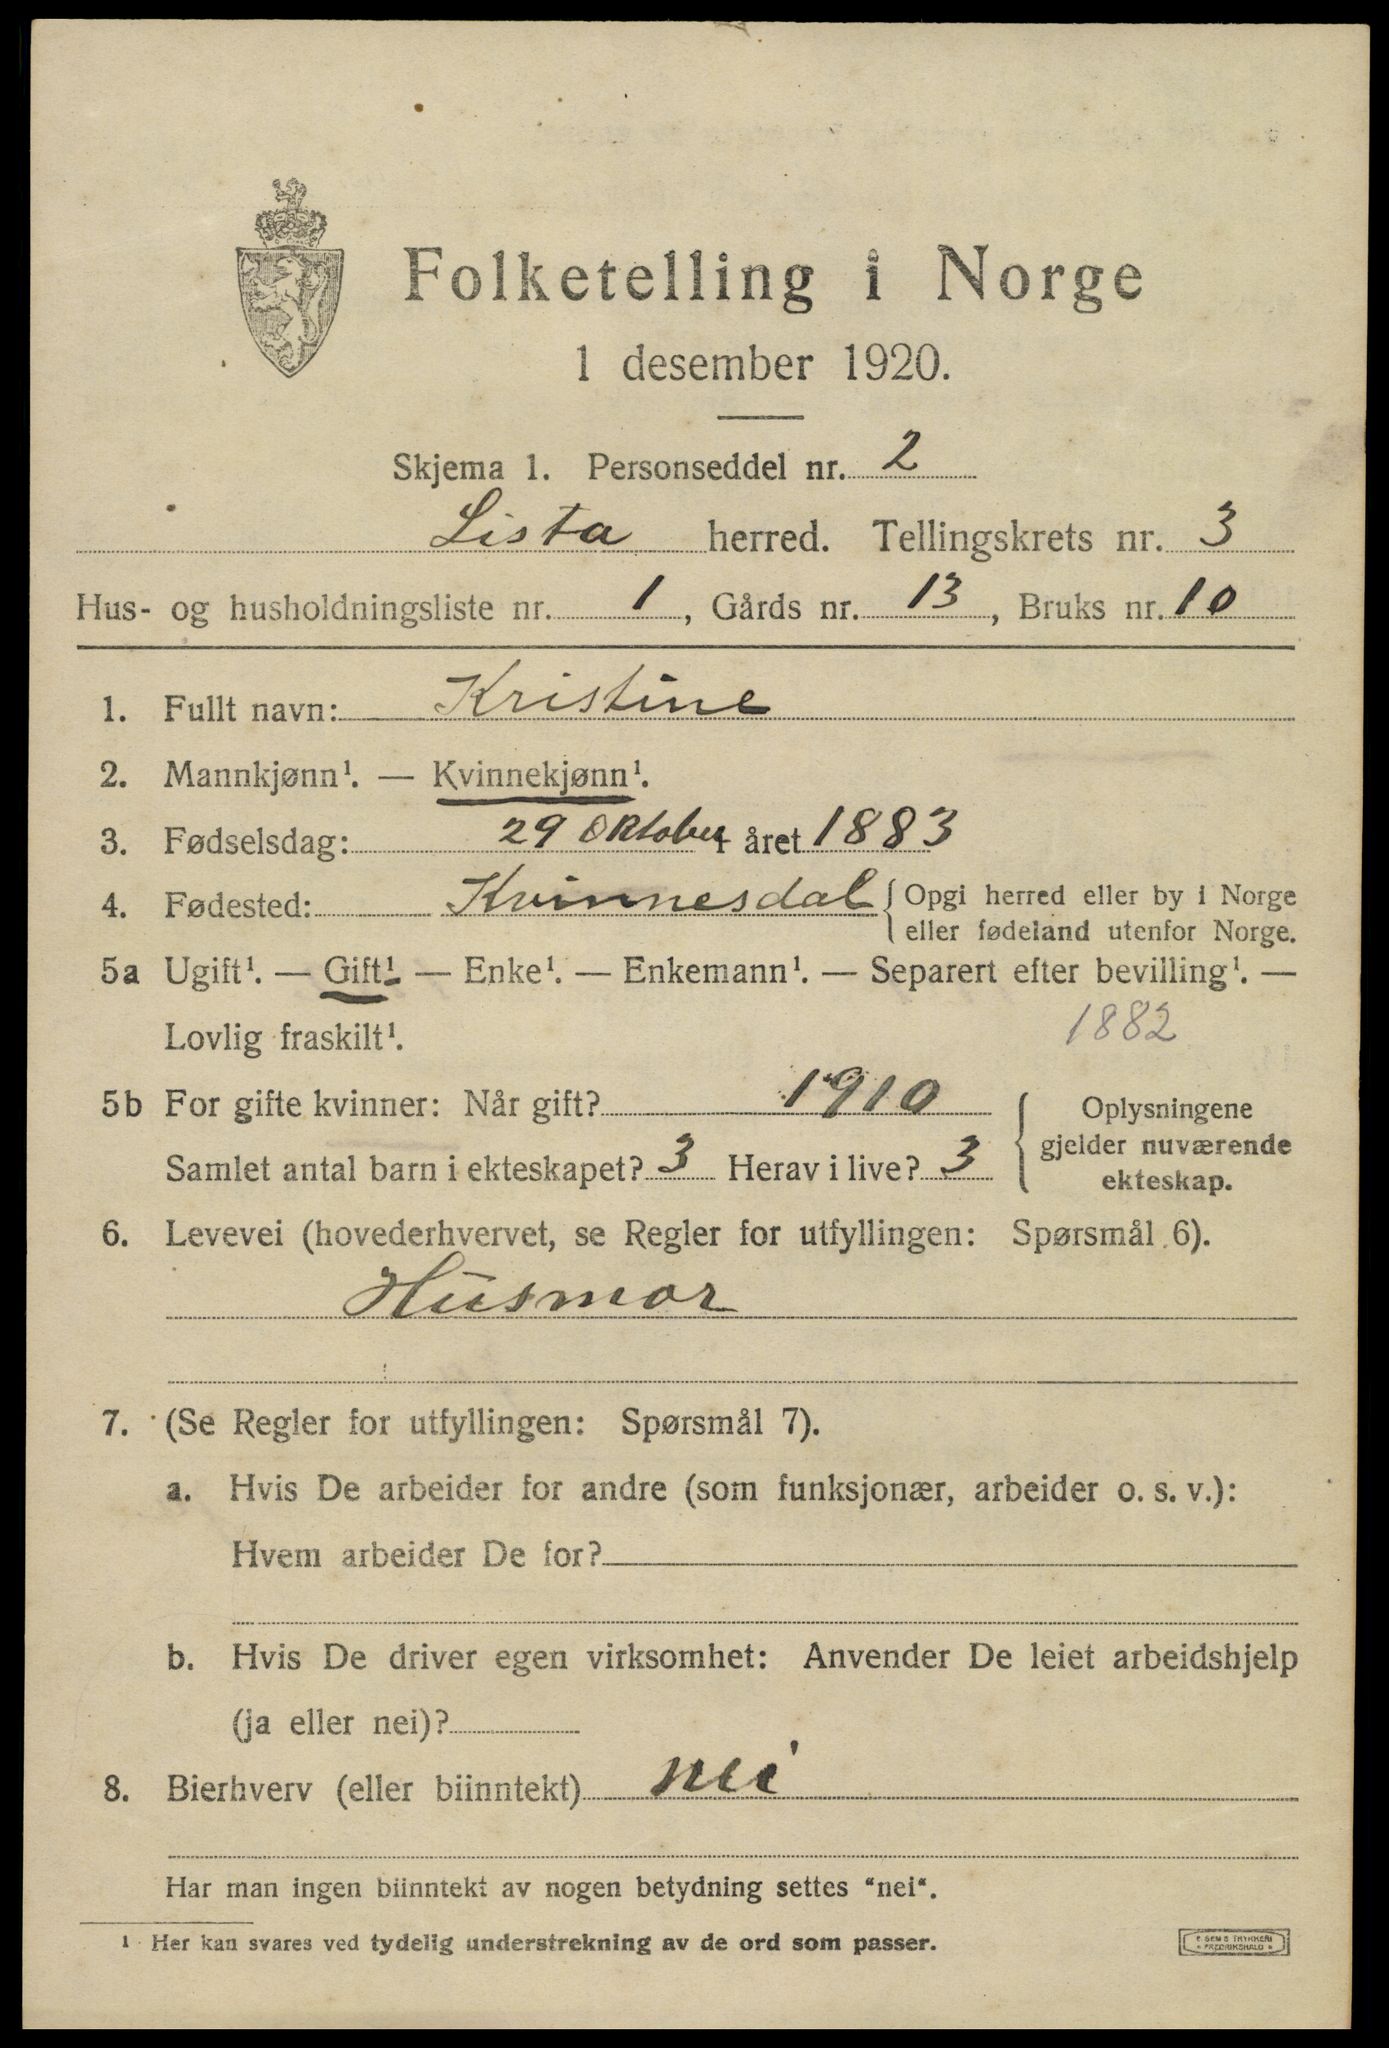 Folketelling i Norge
1 desember 1920.
Skjema 1. Personseddel nr. 2
Lista herred. Tellingskrets nr. 3
Hus- og husholdningsliste nr. 1, Gårds nr. 13, Bruks nr. 10
1. Fullt navn: Kristine
2. Mannkjønn¹. — Kvinnekjønn¹.
3. Fødselsdag: 29 Oktober i året 1883
4. Fødested: Kvinnesdal { Opgi herred eller by i Norge
eller fødeland utenfor Norge.
5a Ugift¹. — Gift¹ — Enke¹. — Enkemann¹. — Separert efter bevilling¹. —
Lovlig fraskilt¹. 1882
5b For gifte kvinner: Når gift? 1910 { Oplysningene
gjelder nuværende
Samlet antal barn i ekteskapet? 3 Herav i live? 3
ekteskap.
6. Levevei (hovederhvervet, se Regler for utfyllingen: Spørsmål 6).
Husmor
7. (Se Regler for utfyllingen: Spørsmål 7).
a. Hvis De arbeider for andre (som funksjonær, arbeider o. s. v.):
Hvem arbeider De for?
b. Hvis De driver egen virksomhet: Anvender De leiet arbeidshjelp
(ja eller nei)?
8. Bierhverv (eller biinntekt) nei
Har man ingen biinntekt av nogen betydning settes "nei".
¹ Her kan svares ved tydelig understrekning av de ord som passer.